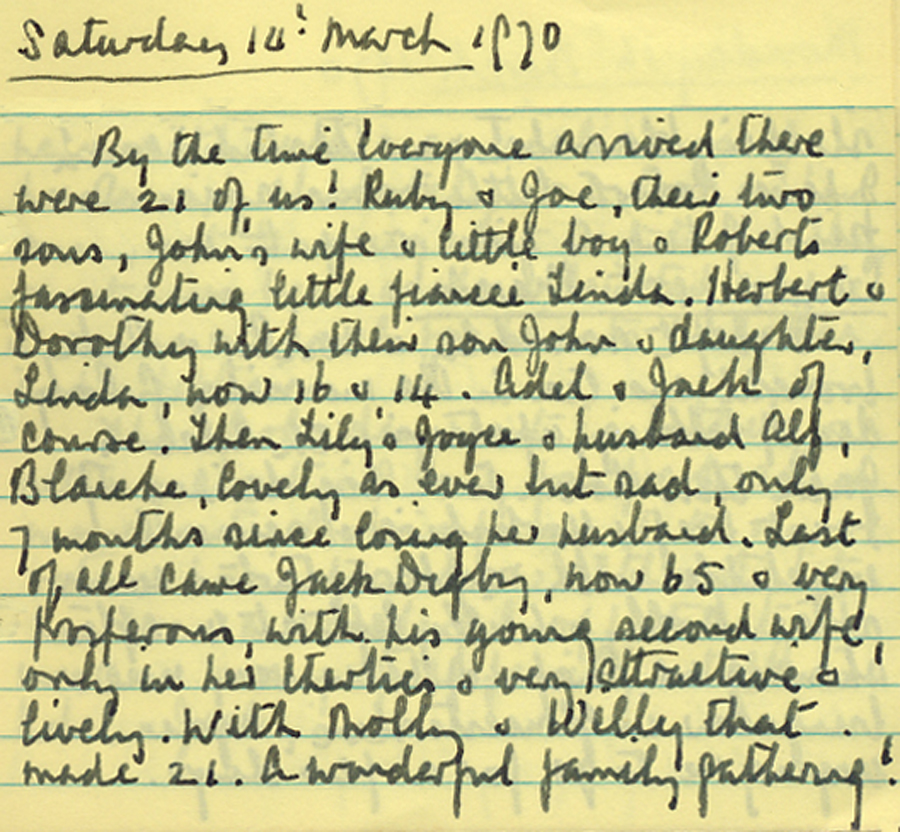 Saturday 14' March 1970
By the time everyone arrived there
were 21 of us! Ruby & Joe, their two
sons, John's wife & little boy & Roberts
fascinating little fiancée Linda. Herbert &
Dorothy with their son John & daughter,
Linda, now 16 & 14. Adel & Jack of
course. Then Lily & Joyce & husband Alf,
Blanche, lovely as ever but sad, only
7 months since losing her husband. Last
of all came Jack Digby, now 65 & very
prosperous, with his young second wife,
only in her therties & very attractive &
lively. With Molly & Willy that
made 21. A wonderful family gathering!